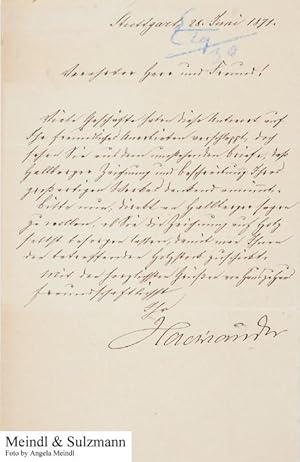 Stuttgart 28. Juni 1871.
Verehrter Herr und Freund!
Viele Geschäfte haben diese Antwort auf
Ihr freundliches Anerbieten verschleppt, doch
sehen Sie aus dem umstehenden Briefe, daß
Hallberger Zeichnung und Beschreibung Ihres
großartigen Werkes dankend annimmt.
Bitte nun, direkt an Hallberger sagen
zu wollen, ob Sie die Zeichnung auf Holz
selbst besorgen lassen, damit man Ihnen
den betreffenden Holzstock zuschickt.
Mit den herzlichsten Grüßen von Haus zu Haus
freundschaftlichst
Ihr
Hackländer
Meindl & Sulzmann
Foto by Angela Meindl